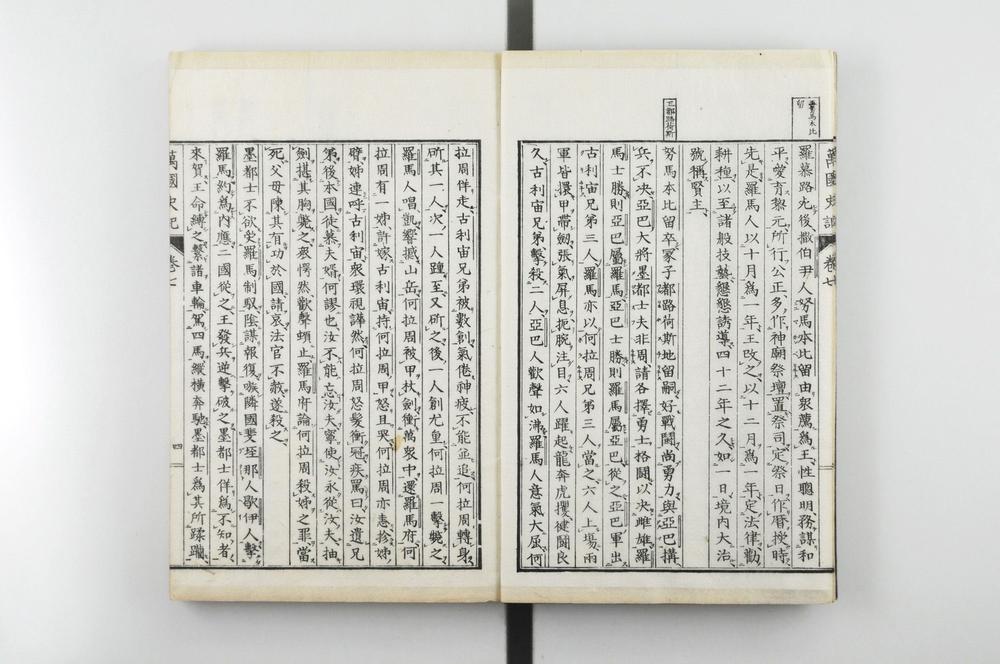 羅慕路死後撒伯尹人努馬本比留由衆薦爲王性聰明務謀和
平愛育黎元所行公正多作神廟祭壇置祭司定祭日作曆授時
先是羅馬人以十月爲一年王改之以十二月爲一年定法律勸
耕種以至諸般技藝懇懇誘導四十二年之久如一日境内大治
號稱賢主
努馬本比留卒冢子都路荷斯地留嗣好戰鬪尚勇力與亞巴搆
兵不決亞巴大將墨都士夫非周請各擇勇士格鬪以决雌雄羅
馬士勝則亞巴屬羅馬亞巴士勝則羅馬屬亞巴從之亞巴軍出
古利宙兄弟三人羅馬亦以何拉周兄弟三人當之六人上場兩
軍皆擐甲帶劔張氣屏息扼腕注目六人躍起龍奔虎攫健鬪良
久古利宙兄弟擊殺二人亞巴人歡聲如沸羅馬人意氣大屈何
拉周佯走古利宙兄弟被數創氣倦神疲不能並追何拉周轉身
斫其一人次一人踵至又斫之後一人創尤重何拉周一擊斃之
羅馬人唱凱響撼山岳何拉周被甲杖劍衝萬衆中還羅馬府何
拉周有一姊許嫁古利宙持何拉周甲怒且哭何拉周亦恚抮姊
臂姊連呼古利宙衆環視譁然何拉周怒髮衝冠疾罵曰汝遺兄
弟後本國徒慕夫婿何謬也汝不能忘汝夫寧使汝永從汝夫抽
劍揕其胸斃之衆愕然歡聲頓止羅馬府論何拉周殺姊之罪當
死父母陳其有功於國請哀法官不赦遂殺之
墨都士不欲受羅馬制馭陰謀報復嗾隣國斐垤那人歇伊人擊
羅馬約爲内應二國從之王發兵逆擊破之墨都士佯爲不知者
來賀王命縛之繫諸車輪駕四馬縱横奔馳墨都士爲其所蹂躪
萬國史記
卷七
四